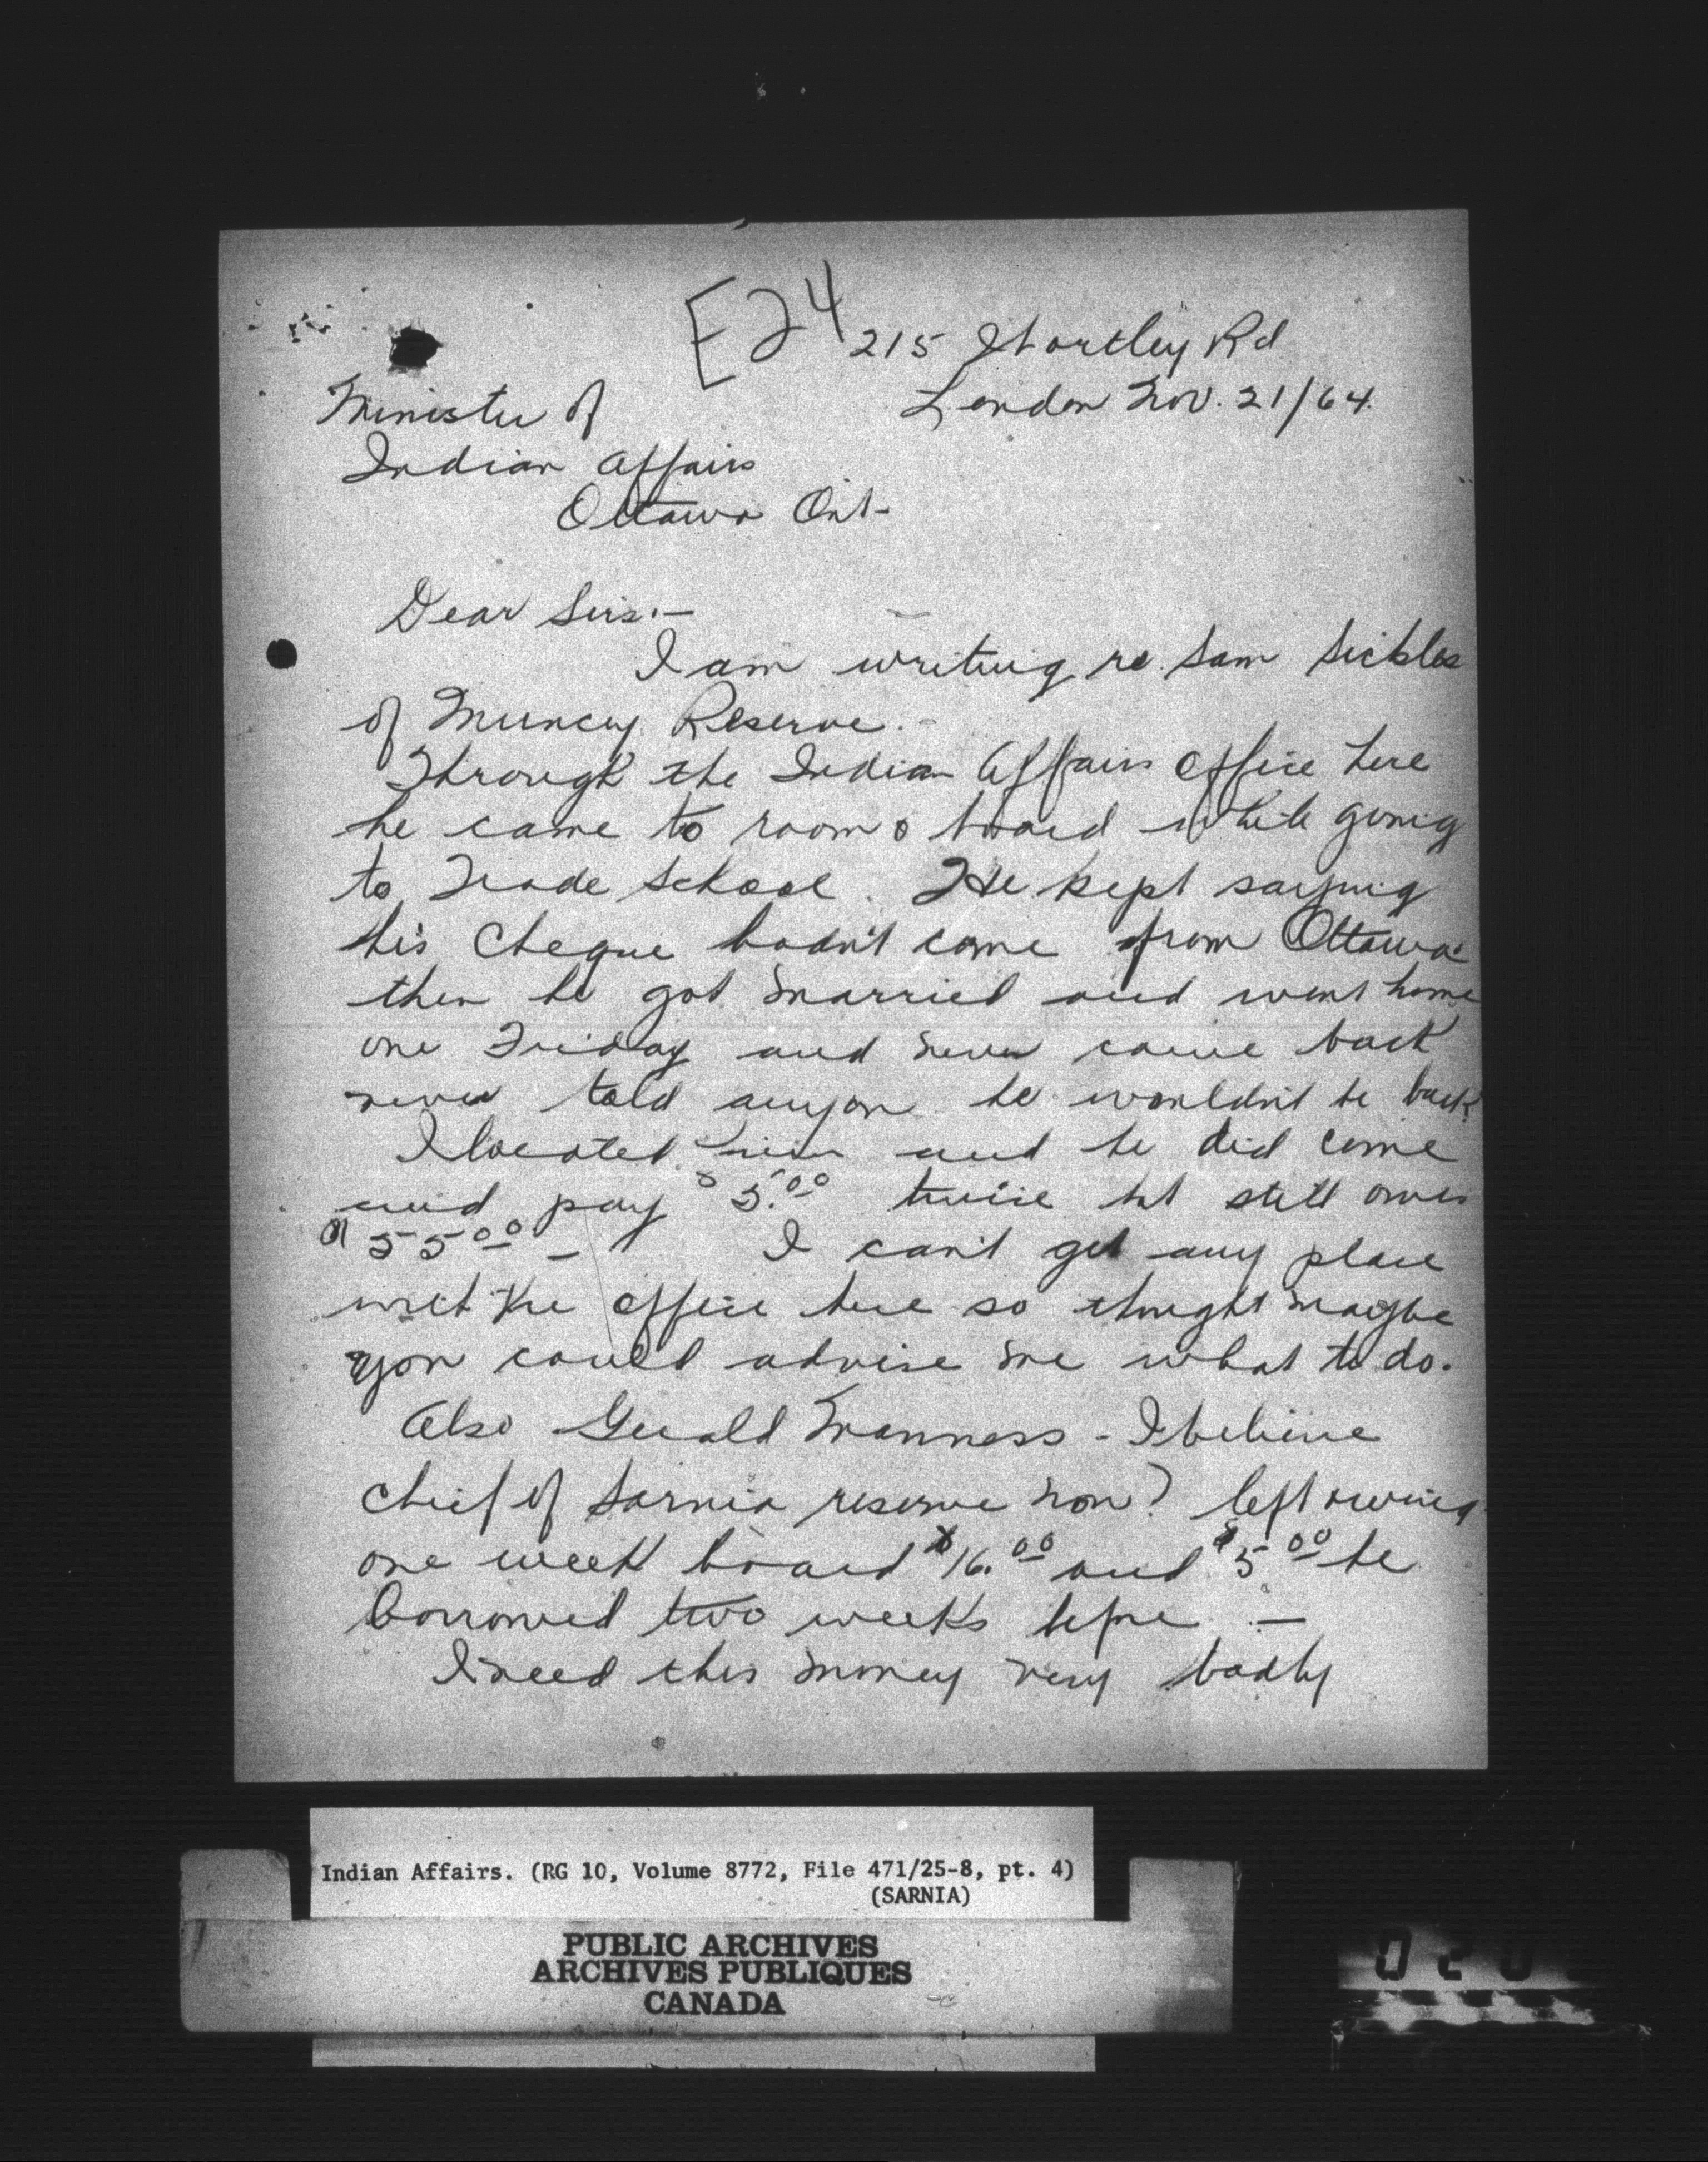 E24
215 Wortley Rd
London Nov. 21/64.
Minister of
Indian Affairs
Ottawa Ont-
Dear Sirs:-
I am writing re. Sam Sickles
of Muncey Reserve.-
Through the Indian Affairs Office here
he came to room & board while going
to Trade School. He kept saying
his Cheque hadn't come from Ottawa
then he got married and went home
one Friday and never came back
never told anyon he wouldn't be back
I located him and he did come
and pay $5.00 twice but still owes
$55.00 - I can't get any place
with the office here so thought maybe
you could advise me what to do.
Also Gerald Manness - I believe
chief of Sarnia reserve now? left owing
one week board $16.00 and $5.00 he
borrowed two weeks before -
I need this money very badly
Indian Affairs. (RG 10, Volume 8772, File 471/25-8, pt. 4)
(SARNIA)
PUBLIC ARCHIVES
ARCHIVES PUBLIQUES
CANADA
020